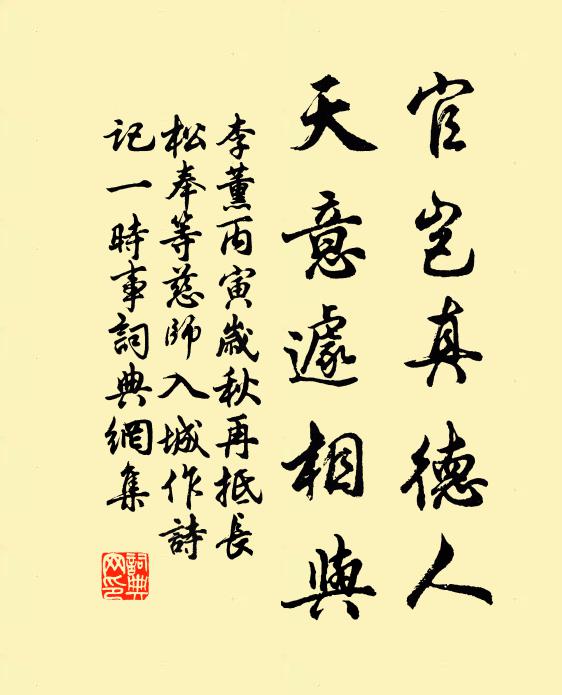 官豈真德人
天意遽相與
李薰丙寅歲秋再抵長
松奉等慈師入城作詩
記一時事詞典網集
詞典
网印